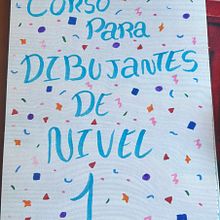 CURSO
PARA
DIBUJANTES
DE
NIVEL
1